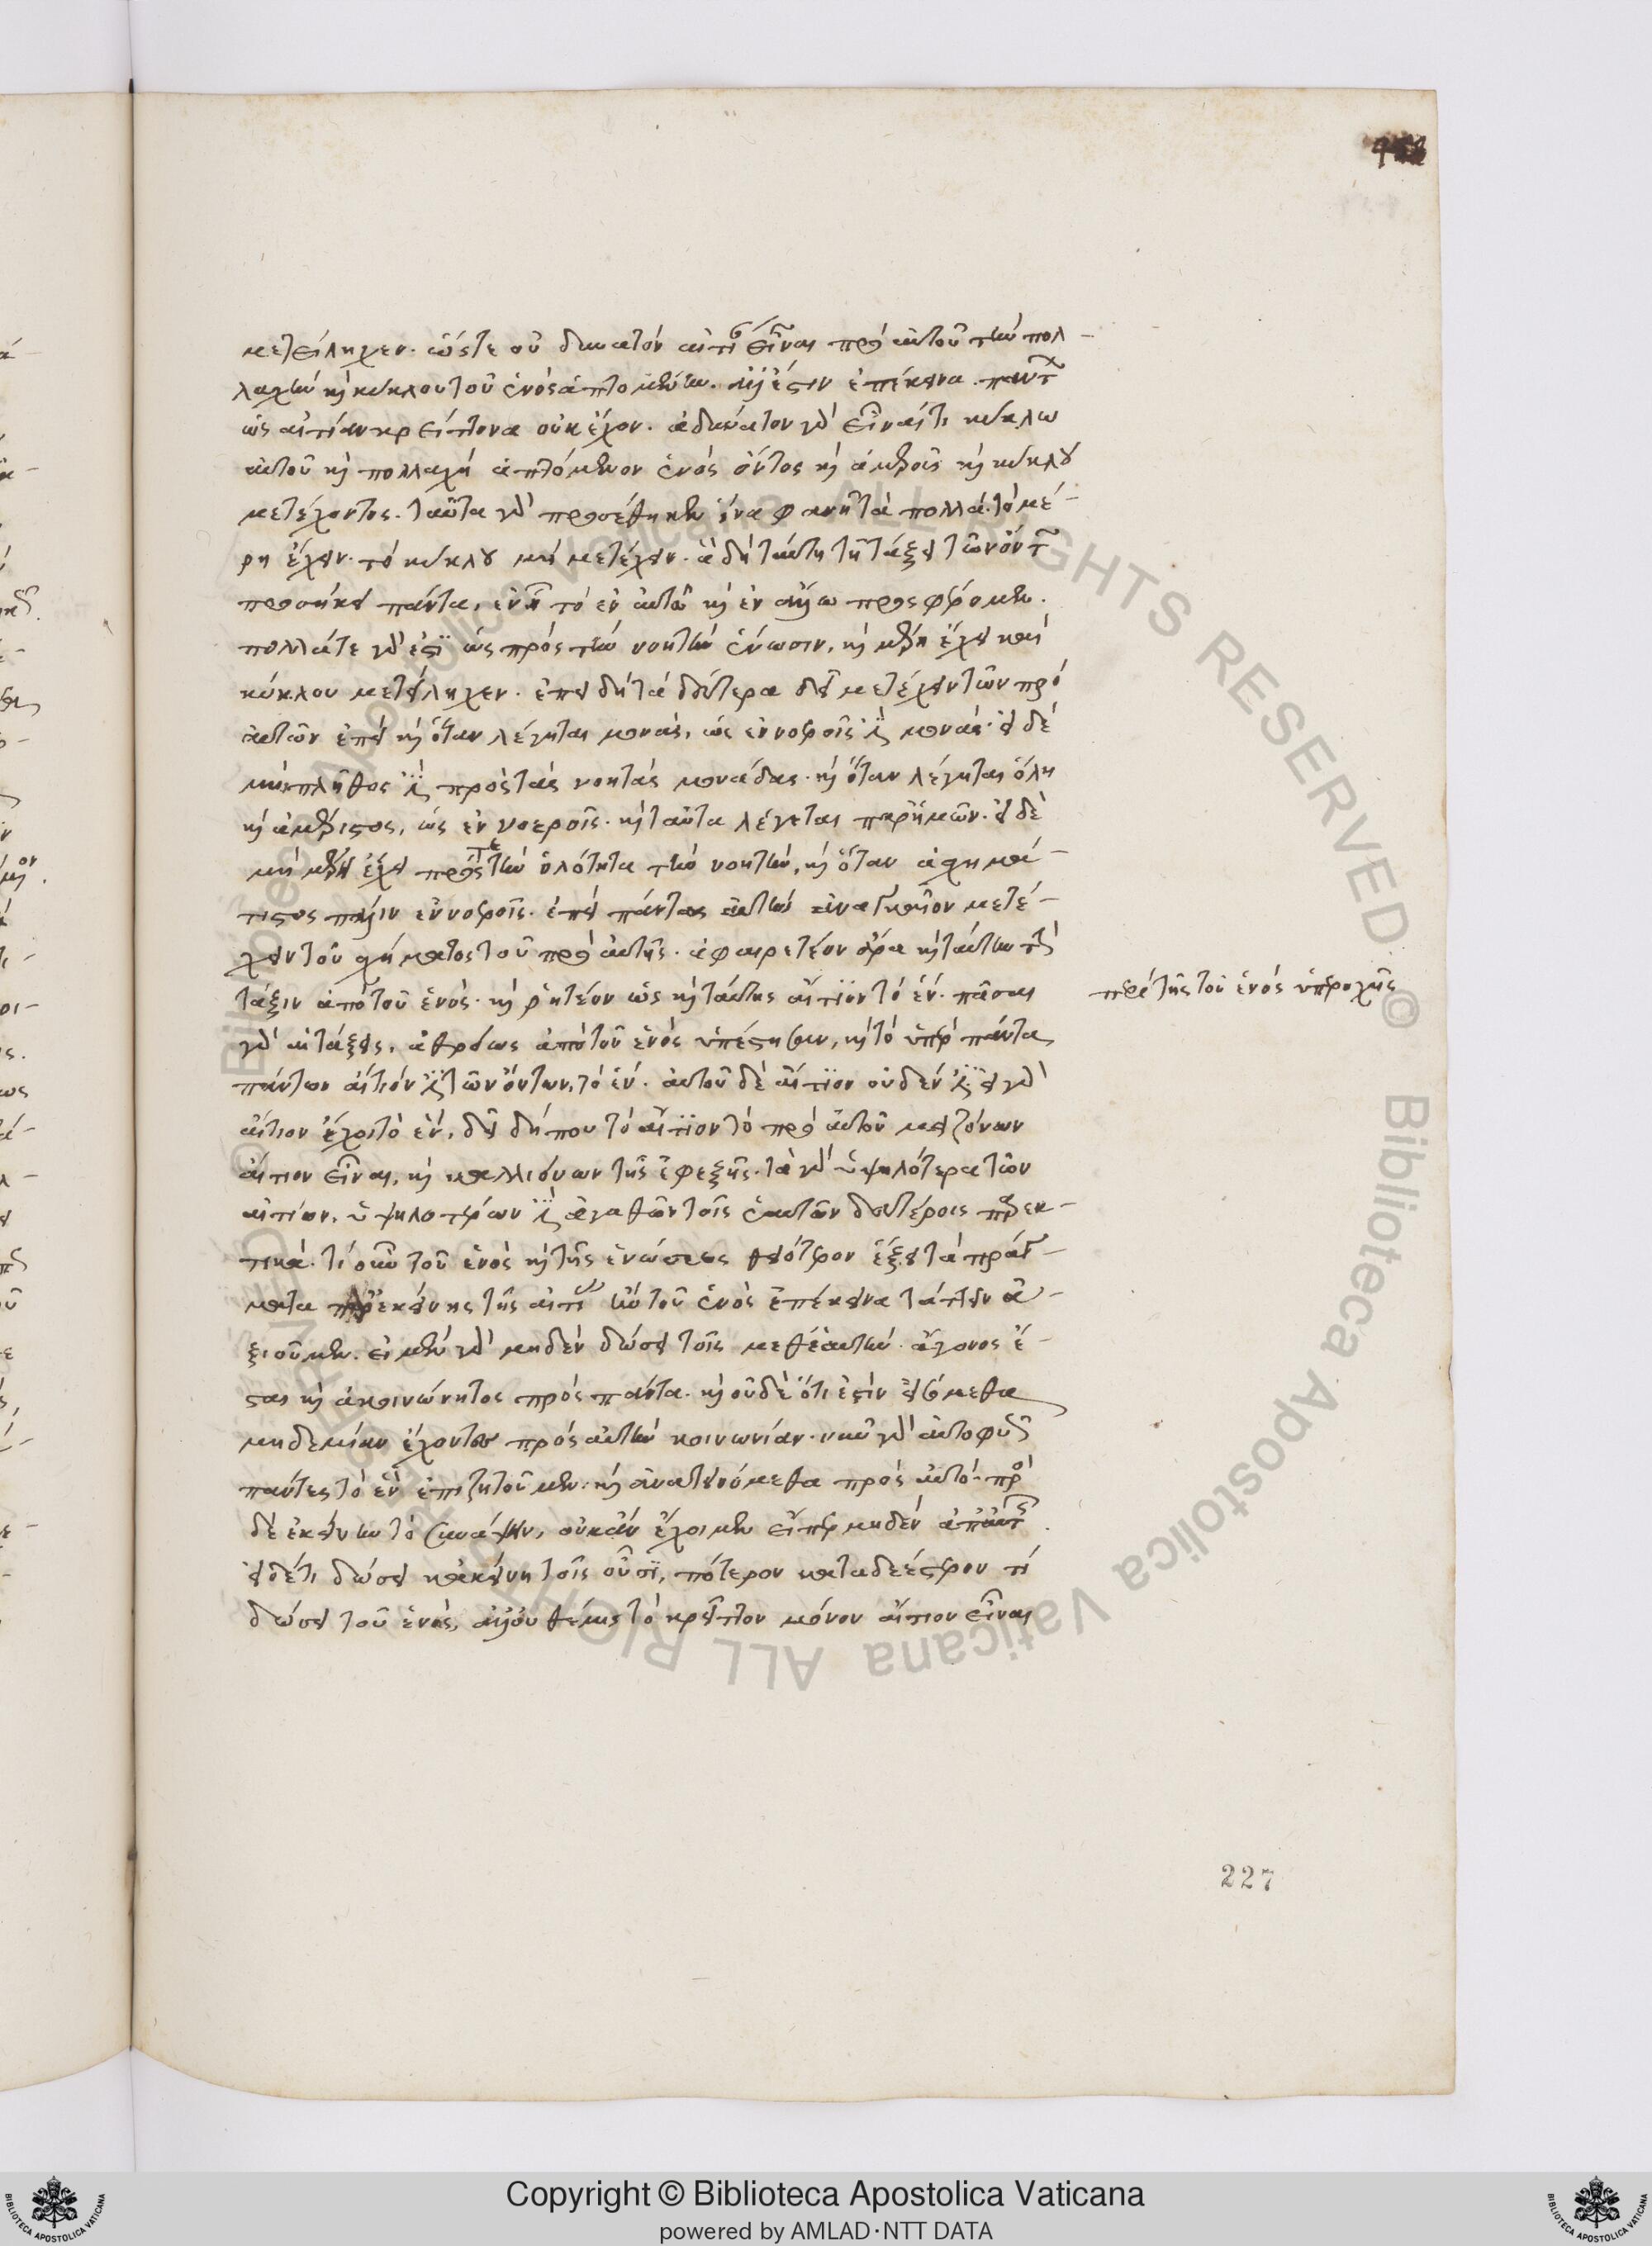 μετείληχεν. ὥστε οὐ δυνατὸν αἴτιον εἶναι πρὸ αὐτοῦ τῶν πολ-
λαχῇ καὶ κύκλου τοῦ ἑνὸς ἁπτομένων. ἀλλ' ἔστιν ἐπέκεινα πάντων
ὡς αἰτίαν κρείττονα οὐκ ἔχον. ἀδύνατον γὰρ εἶναί τι κύκλω
αὐτοῦ καὶ πολλαχῇ ἁπτόμενον ἑνὸς ὄντος καὶ ἀμεροῦς καὶ κύκλου
μετέχοντος. ταῦτα γὰρ προσέθηκεν ἵνα φανῇ τὰ πολλά. τὸ μέ-
ρη ἔχειν. τὸ κύκλου μὴ μετέχειν. ἃ δὴ ταύτῃ τῇ τάξει τῶν ὄντων
προσήκει πάντα,
πολλά τε γάρ ἐστι ὡς πρὸς τὴν νοητὴν ἕνωσιν, καὶ μέρη ἔχει καὶ
κύκλου μετείληχεν. ἐπειδὴ τὰ δεύτερα δεῖ μετέχειν τῶν πρὸ
αὐτῶν ἐπεὶ καὶ ὅταν λέγηται μονάς, ὡς ἐν νοεροῖς ἐστὶ μονάς. εἰ δὲ
μὴ πλῆθος ἐστὶ πρὸς τὰς νοητὰς μονάδας. καὶ ὅταν λέγηται ὅλη
καὶ ἀμέριστος, ὡς ἐν νοεροῖς. καὶ ταῦτα λέγεται παρ' ἡμῶν. εἰ δὲ
μὴ μέρη ἔχει πρός τε τὴν ὁλότητα τὴν νοητήν, καὶ ὅταν ἀσχημά-
τιστος πάλιν ἐν νοεροῖς. ἐπεὶ πάντως αὐτὴν ἀναγκαῖον μετέ-
χειν τοῦ σχήματος τοῦ πρὸ αὐτῆς. ἀφαιρετέον ἄρα καὶ ταύτην τὴν
τάξιν ἀπὸ τοῦ ἑνός. καὶ ῥητέον ὡς καὶ ταύτης αἴτιον τὸ ἕν. πᾶσαι
γὰρ αἱ τάξεις, ἀθρόως ἀπὸ τοῦ ἑνὸς ὑπέστησαν, καὶ τὸ ὑπὲρ πάντα
πάντων αἴτιόν ἐστι τῶν ὄντων, τὸ ἕν. αὐτοῦ δὲ αἴτιον οὐδέν ἐστι εἰ γὰρ
αἴτιον ἔχοι τὸ ἕν, δεῖ δήπου τὸ αἴτιον τὸ πρὸ αὐτοῦ μειζόνων
αἴτιον εἶναι, καὶ καλλιόνων τῆς ἐφεξῆς. τὰ γὰρ ὑψηλότερα τῶν
αἰτίων, ὑψηλοτέρων ἐστὶ ἀγαθῶν τοῖς ἑαυτῶν δευτέροις παρεκ-
τικά. τί οὖν τοῦ ἑνὸς καὶ τῆς ἑνώσεως θειότερον ἕξει τὰ πράγ-
ματα παρ' ἐκείνης τῆς αἰτίας ἣν τοῦ ἑνὸς ἐπέκεινα τάττειν ἀ-
ξιοῦμεν. εἰ μὲν γὰρ μηδὲν δώσει τοῖς μεθ' ἑαυτήν. ἄγονος ἔ-
σται καὶ ἀκοινώνητος πρὸς πάντα. καὶ οὐδὲ ὅτι ἐστὶν εἰσόμεθα
μηδεμίαν ἔχοντες πρὸς αὐτὴν κοινωνίαν. νῦν γὰρ αὐτοφυῶς
πάντες τὸ ἓν ἐπιζητοῦμεν. καὶ ἀνατεινόμεθα πρὸς αὐτό. πρὸς
δὲ ἐκείνην τὸ συνάπτον, οὐκ ἂν ἔχοιμεν εἴπερ μηδὲν
εἰ δέ τι δώσει κἀκείνη τοῖς οὖσι, πότερον καταδεέστερόν τι
δώσει τοῦ ἑνός, ἀλλ' οὐ θέμις τὸ κρεῖττον μόνον αἴτιον εἶναι
περὶ τῆς τοῦ ἑνὸς ὑπεροχῆς
227
Copyright © Biblioteca Apostolica Vaticana
powered by AMLAD·NTT DATA